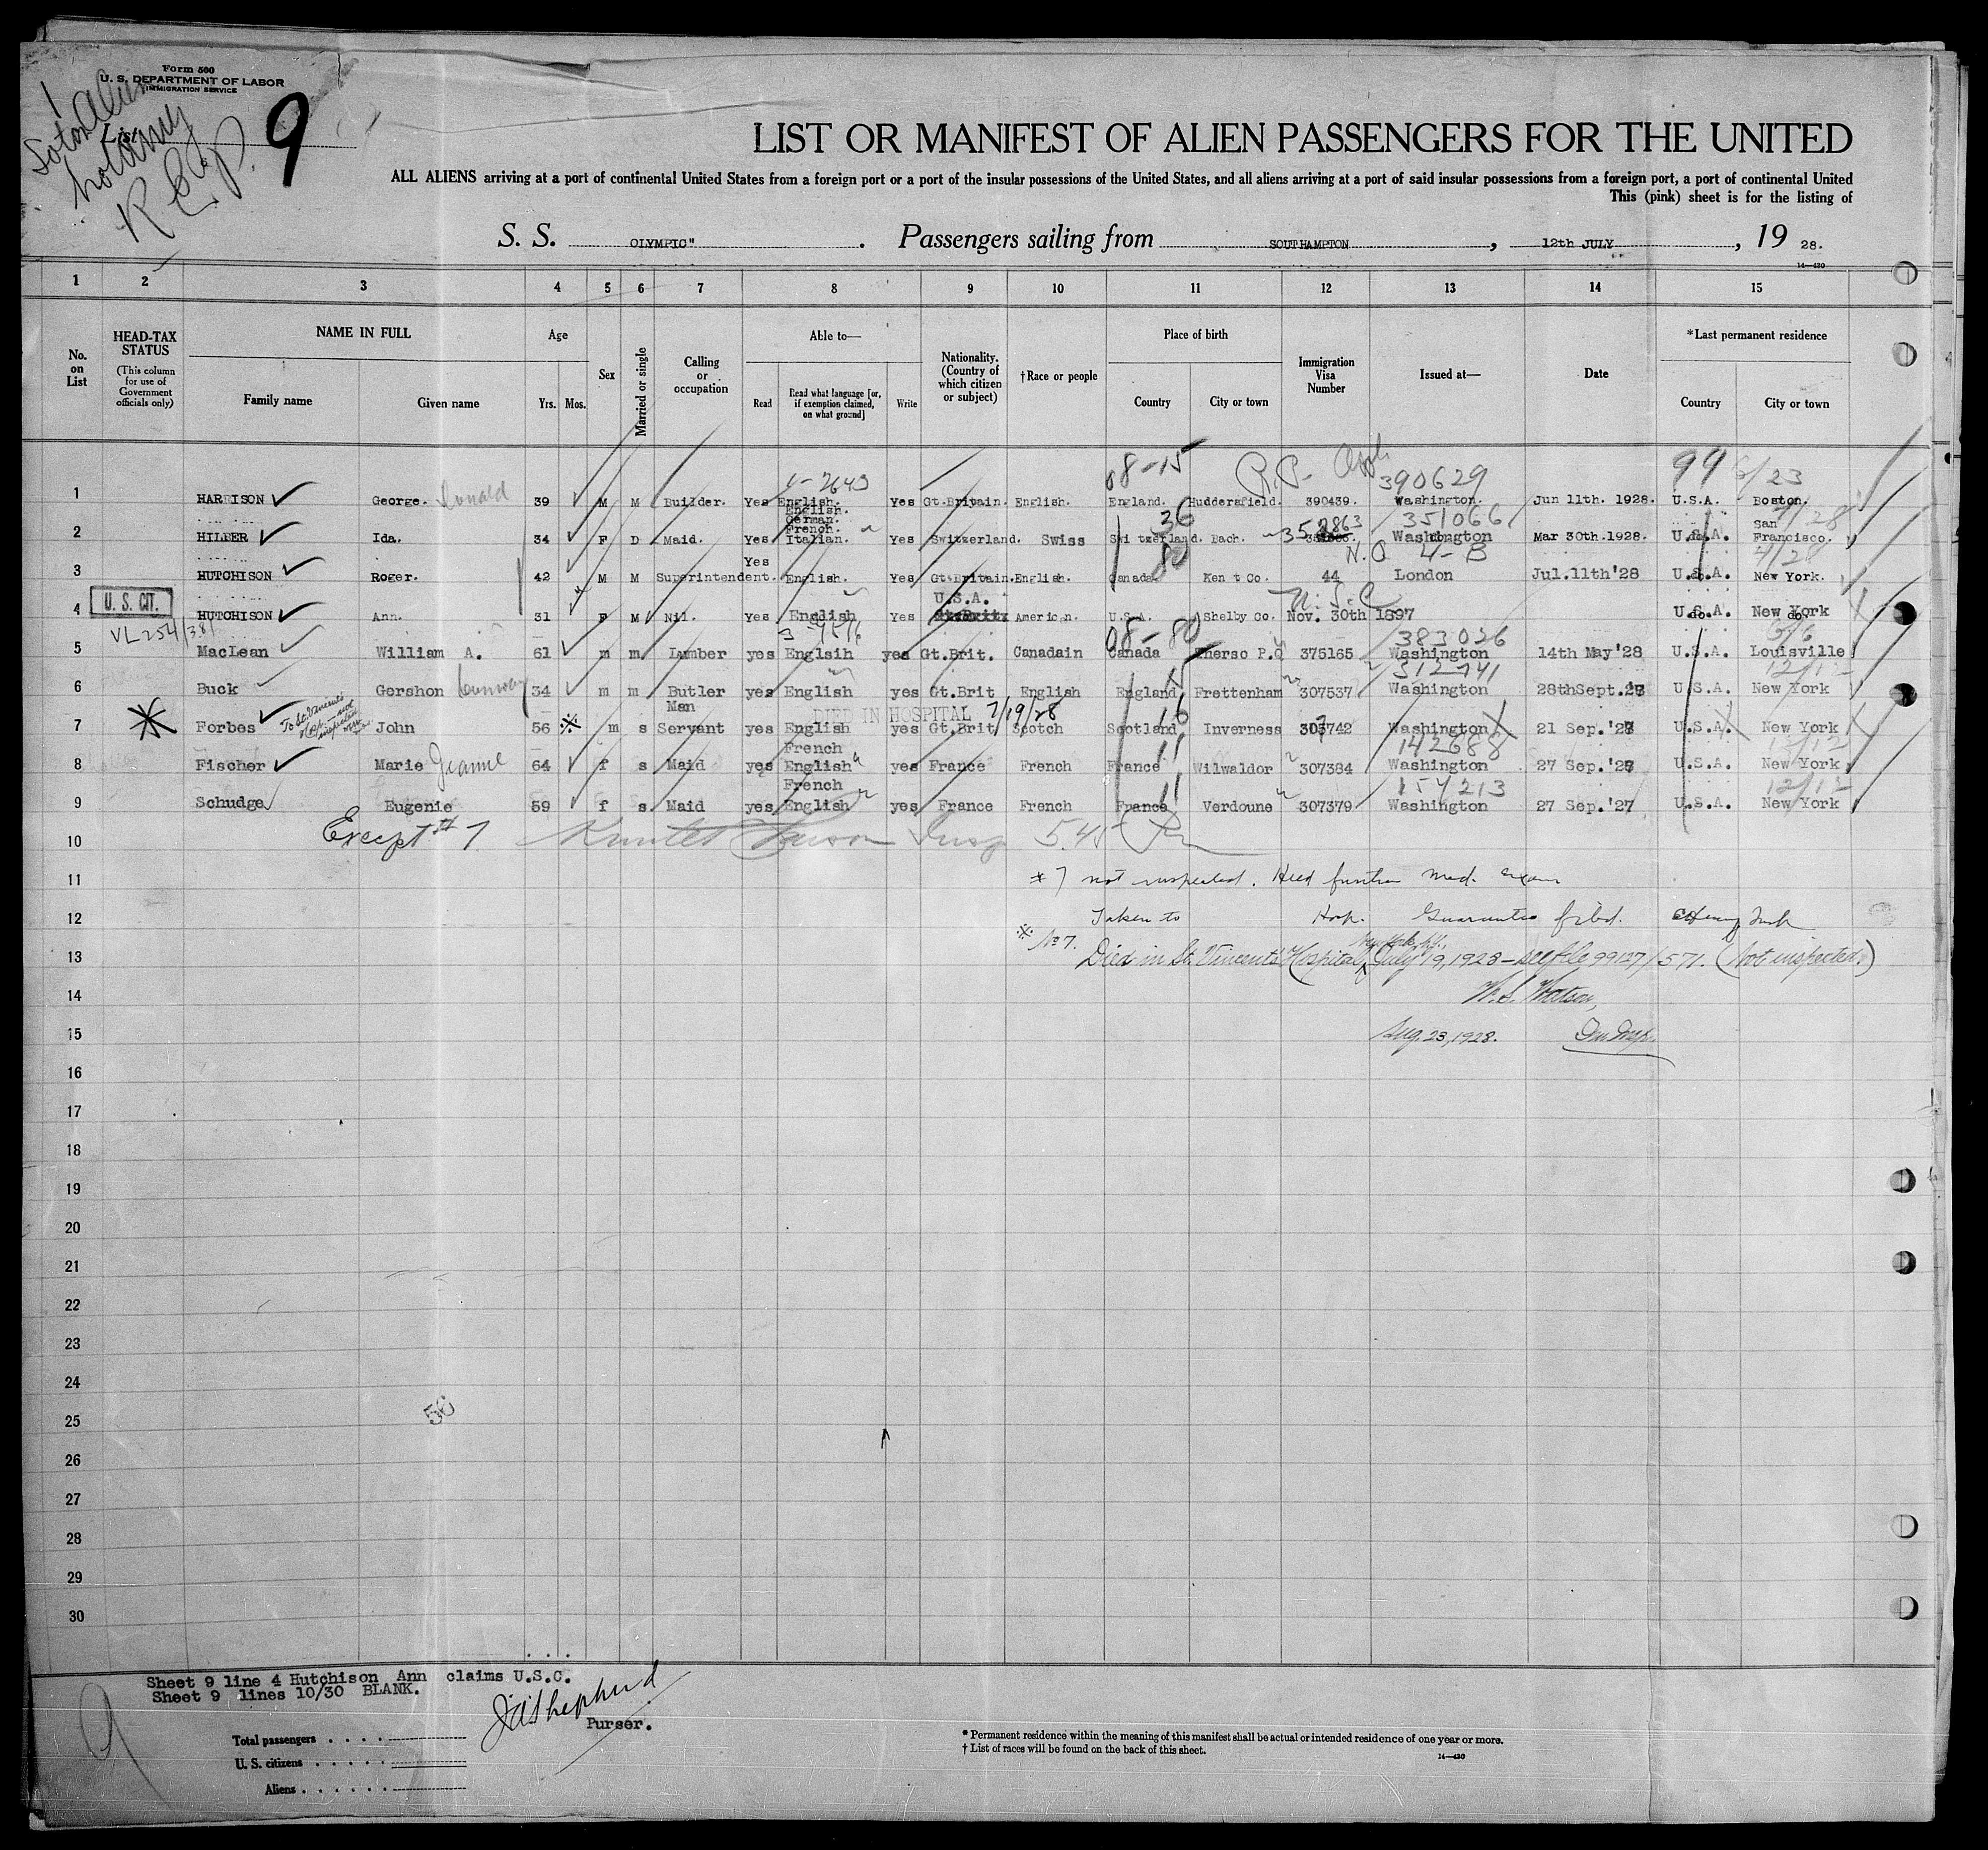 Form 500
U. S. DEPARTMENT OF LABOR
IMMIGRATION SERVICE
List
9
LIST OR MANIFEST OF ALIEN PASSENGERS FOR THE UNITED
ALL ALIENS arriving at a port of continental United States from a foreign port or a port of the insular possessions of the United States, and all aliens arriving at a port of said insular possessions from a foreign port, a port of continental United
This (pink) sheet is for the listing of
S. S. OLYMPIC" . Passengers sailing from SOUTHAMPTON , 12th JULY , 19 28.
14—430
1 2 3 4 5 6 7 8 9 10 11 12 13 14 15
No. on List
HEAD-TAX STATUS
(This column for use of Government officials only)
NAME IN FULL
Family name Given name
Age
Yrs. Mos.
Sex
Married or single
Calling or occupation
Able to—
Read Read what language [or, if exemption claimed, on what ground] Write
Nationality. (Country of which citizen or subject)
†Race or people
Place of birth
Country City or town
Immigration Visa Number
Issued at—
Date
*Last permanent residence
Country City or town
08-15 390629 99 6/23
1 HARRISON George. Donald 39 M M Builder. Yes English. Yes Gt.Britain. English. England. Huddersfield. 390439. Washington. Jun 11th. 1928. U.S.A. Boston.
English. German. French. 36 351066 San
2 HILBER Ida. 34 F D Maid. Yes Italian. Yes Switzerland. Swiss Switzerland. Bach. Washington Mar 30th.1928. U.S.A. Francisco.
Yes 80 N.Q 4-B 4/28
3 HUTCHISON Roger. 42 M M Superintendent. English. Yes Gt.Britain. English. Canada Kent Co. 44 London Jul.11th'28 U.S.A. New York.
U. S. CIT. U.S.A.
4 HUTCHISON Ann. 31 F M Nil. Yes English Yes American. U.S.A. Shelby Co. Nov. 30th 1897 U.S.A. New York
VL 254/381 08-80 383026
5 MacLean William A. 61 m m Lumber yes Englsih yes Gt.Brit. Canadain Canada Therso P.Q 375165 Washington 14th May'28 U.S.A. Louisville
312741 12/12
6 Buck Gershon 34 m m Butler yes English yes Gt.Brit English England Frettenham 307537 Washington 28thSept.27 U.S.A. New York
Man DIED IN HOSPITAL 7/19/28
7 Forbes John 56 m s Servant yes English yes Gt.Brit Scotch Scotland Inverness 307742 Washington 21 Sep.'27 U.S.A. New York
French 142688 12/12
8 Fischer Marie Jeanne 64 f s Maid yes English yes France French France Wilwaldor 307384 Washington 27 Sep.'27 U.S.A. New York
French 157213 12/12
9 Schudge Eugenie 59 f s Maid yes English yes France French France Verdoune 307379 Washington 27 Sep.'27 U.S.A. New York
10 Except # 7 Insp 5.45
11 # 7 not inspected. Held further med. exam
12 Taken to Hosp. Guarantee filed.
13 No 7. Died in St. Vincents' Hospital, New York, N.Y., July 19, 1928 – see file 99127/571. (Not inspected.)
14 W. S. Watson,
15 Aug. 23, 1928. Imm Insp.
16
17
18
19
20
21
22
23
24
25
26
27
28
29
30
56
Sheet 9 line 4 Hutchison Ann claims U.S.C.
Sheet 9 lines 10/30 BLANK.
9
Purser.
Total passengers
U. S. citizens
Aliens
* Permanent residence within the meaning of this manifest shall be actual or intended residence of one year or more.
† List of races will be found on the back of this sheet.
14—430